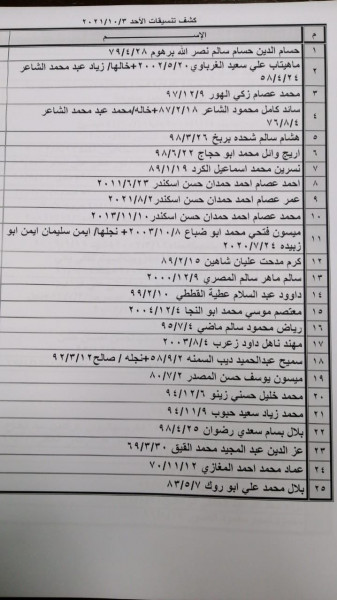 كشف تنسيقات الأحد ٢٠٢١/١٠/٣
م الإســــــم
١ حسام الدين حسام سالم نصر الله برهوم ٧٩/٤/٢٨
٢ ماهيتاب علي سعيد الغرباوي ٢٠٠٢/٥/٢٠+خالها/ زياد عبد محمد الشاعر
٥٨/٤/٢٤
٣ محمد عصام زكي الهور ٩٧/١٢/٩
٤ سائد كامل محمود الشاعر ٨٧/٢/١٨+خاله/محمد عبد محمد الشاعر
٧٦/٨/٤
٥ هشام سالم شحده بربخ ٩٨/٣/٢٦
٦ اريج وائل محمد ابو حجاج ٩٨/٦/٢٢
٧ نسرين محمد اسماعيل الكرد ٨٩/١/١٩
٨ احمد عصام احمد حمدان حسن اسكندر ٢٠١١/٦/٢٣
٩ عمر عصام احمد حمدان حسن اسكندر ٢٠٢١/٨/٢
١٠ محمد عصام احمد حمدان حسن اسكندر ٢٠١٣/١١/١٠
١١ ميسون فتحي محمد ابو ضباع ٢٠٠٣/١٠/٨+ نجلها/ ايمن سليمان ايمن ابو
زبيده ٢٠٢٠/٧/٢٤
١٢ كرم مدحت عليان شاهين ٨٩/٢/١٥
١٣ سالم ماهر سالم المصري ٢٠٠٠/١٢/٩
١٤ داوود عبد السلام عطية القططي ٩٩/٢/١٠
١٥ معتصم موسي محمد ابو النجا ٢٠٠٤/١٢/٤
١٦ رياض محمود سالم ماضي ٩٥/٧/٤
١٧ مهند ناهل داود زعرب ٢٠٠٣/٨/٤
١٨ سميح عبدالحميد ديب السمنه ٥٨/٩/٢+نجله / صالح ٩٢/٣/١٢
١٩ ميسون يوسف حسن المصدر ٨٠/٧/٢
٢٠ محمد خليل حسني زينو ٩٤/١٢/٦
٢١ محمد زياد سعيد حبوب ٩٤/١١/٩
٢٢ بلال بسام سعدي رضوان ٩٨/٤/٢٥
٢٣ عز الدين عبد المجيد محمد القيق ٦٩/٣/٣٠
٢٤ عماد محمد احمد المغازي ٧٠/١١/١٢
٢٥ بلال محمد علي ابو روك ٨٣/٥/٧